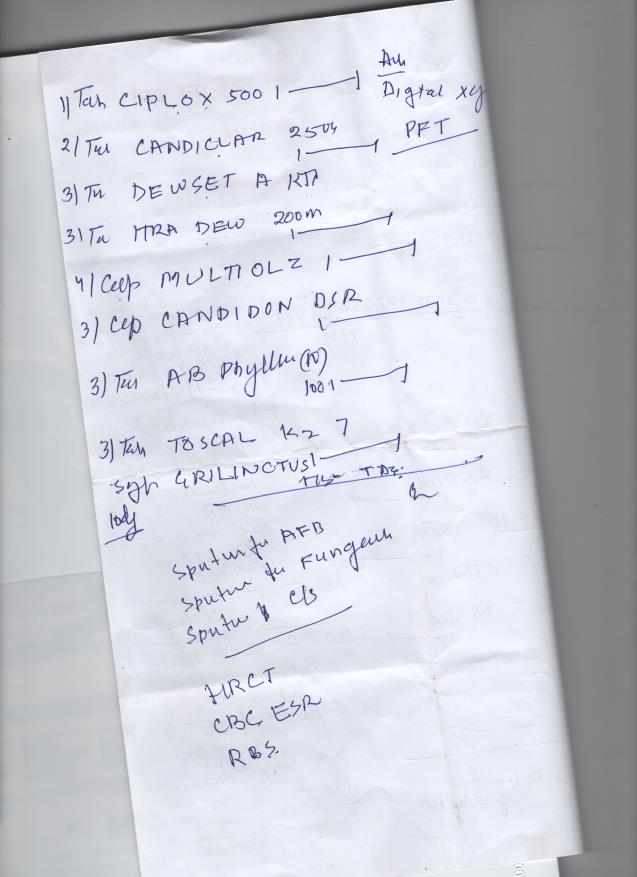 Adv
1) Tab CIPLOX 500 1 — 1 Digtal xy
2) Tab CANDICLAR 250
1 — 1 PFT
3) Tab DEWSET A
3) Tab HRA DEW 200m
1 — 1
4) Cap MULTIOLZ 1 — 1
3) Cap CANDIDON DSR
1 — 1
3) Tab AB Phyllin (N)
100 1 — 1
3) Tab TOSCAL K2 7
1 — 1
Syp GRILINCTUS
TDS
10dy
Sputum for AFB
Sputum for Fungal
Sputum C/S
HRCT
CBC, ESR
RBS